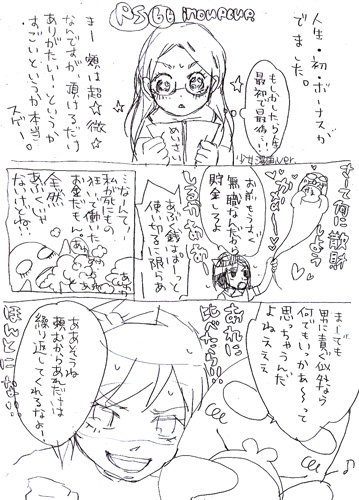 人生・初・ボーナスが
でました。
もしかしたら人生
最初で最後…!!
少女漫画ver.
まー額は超☆微☆
なんですが頂けるだけ
ありがたい…というか
すごいというか本当
スゲー。
めいさい
さって何に散財
しよう
かなぁー
お前もうすぐ
無職なんだから
貯金しろよ
しるかぁぁ
あぶく銭はぱーっと
使い切るに限らぁ
…なーんて
私が死にもの
狂いで働いた
お金だもん。
全然
あぶくじゃ
ないけどね。
まーでも
男に貢ぐ以外なら
何でもいっかぁ～って
思っちゃうんだ
よねええ
あれに
比べたら…!!
ああそうね
頼むからあれだけは
繰り返してくれるなよー
ほんとにな…